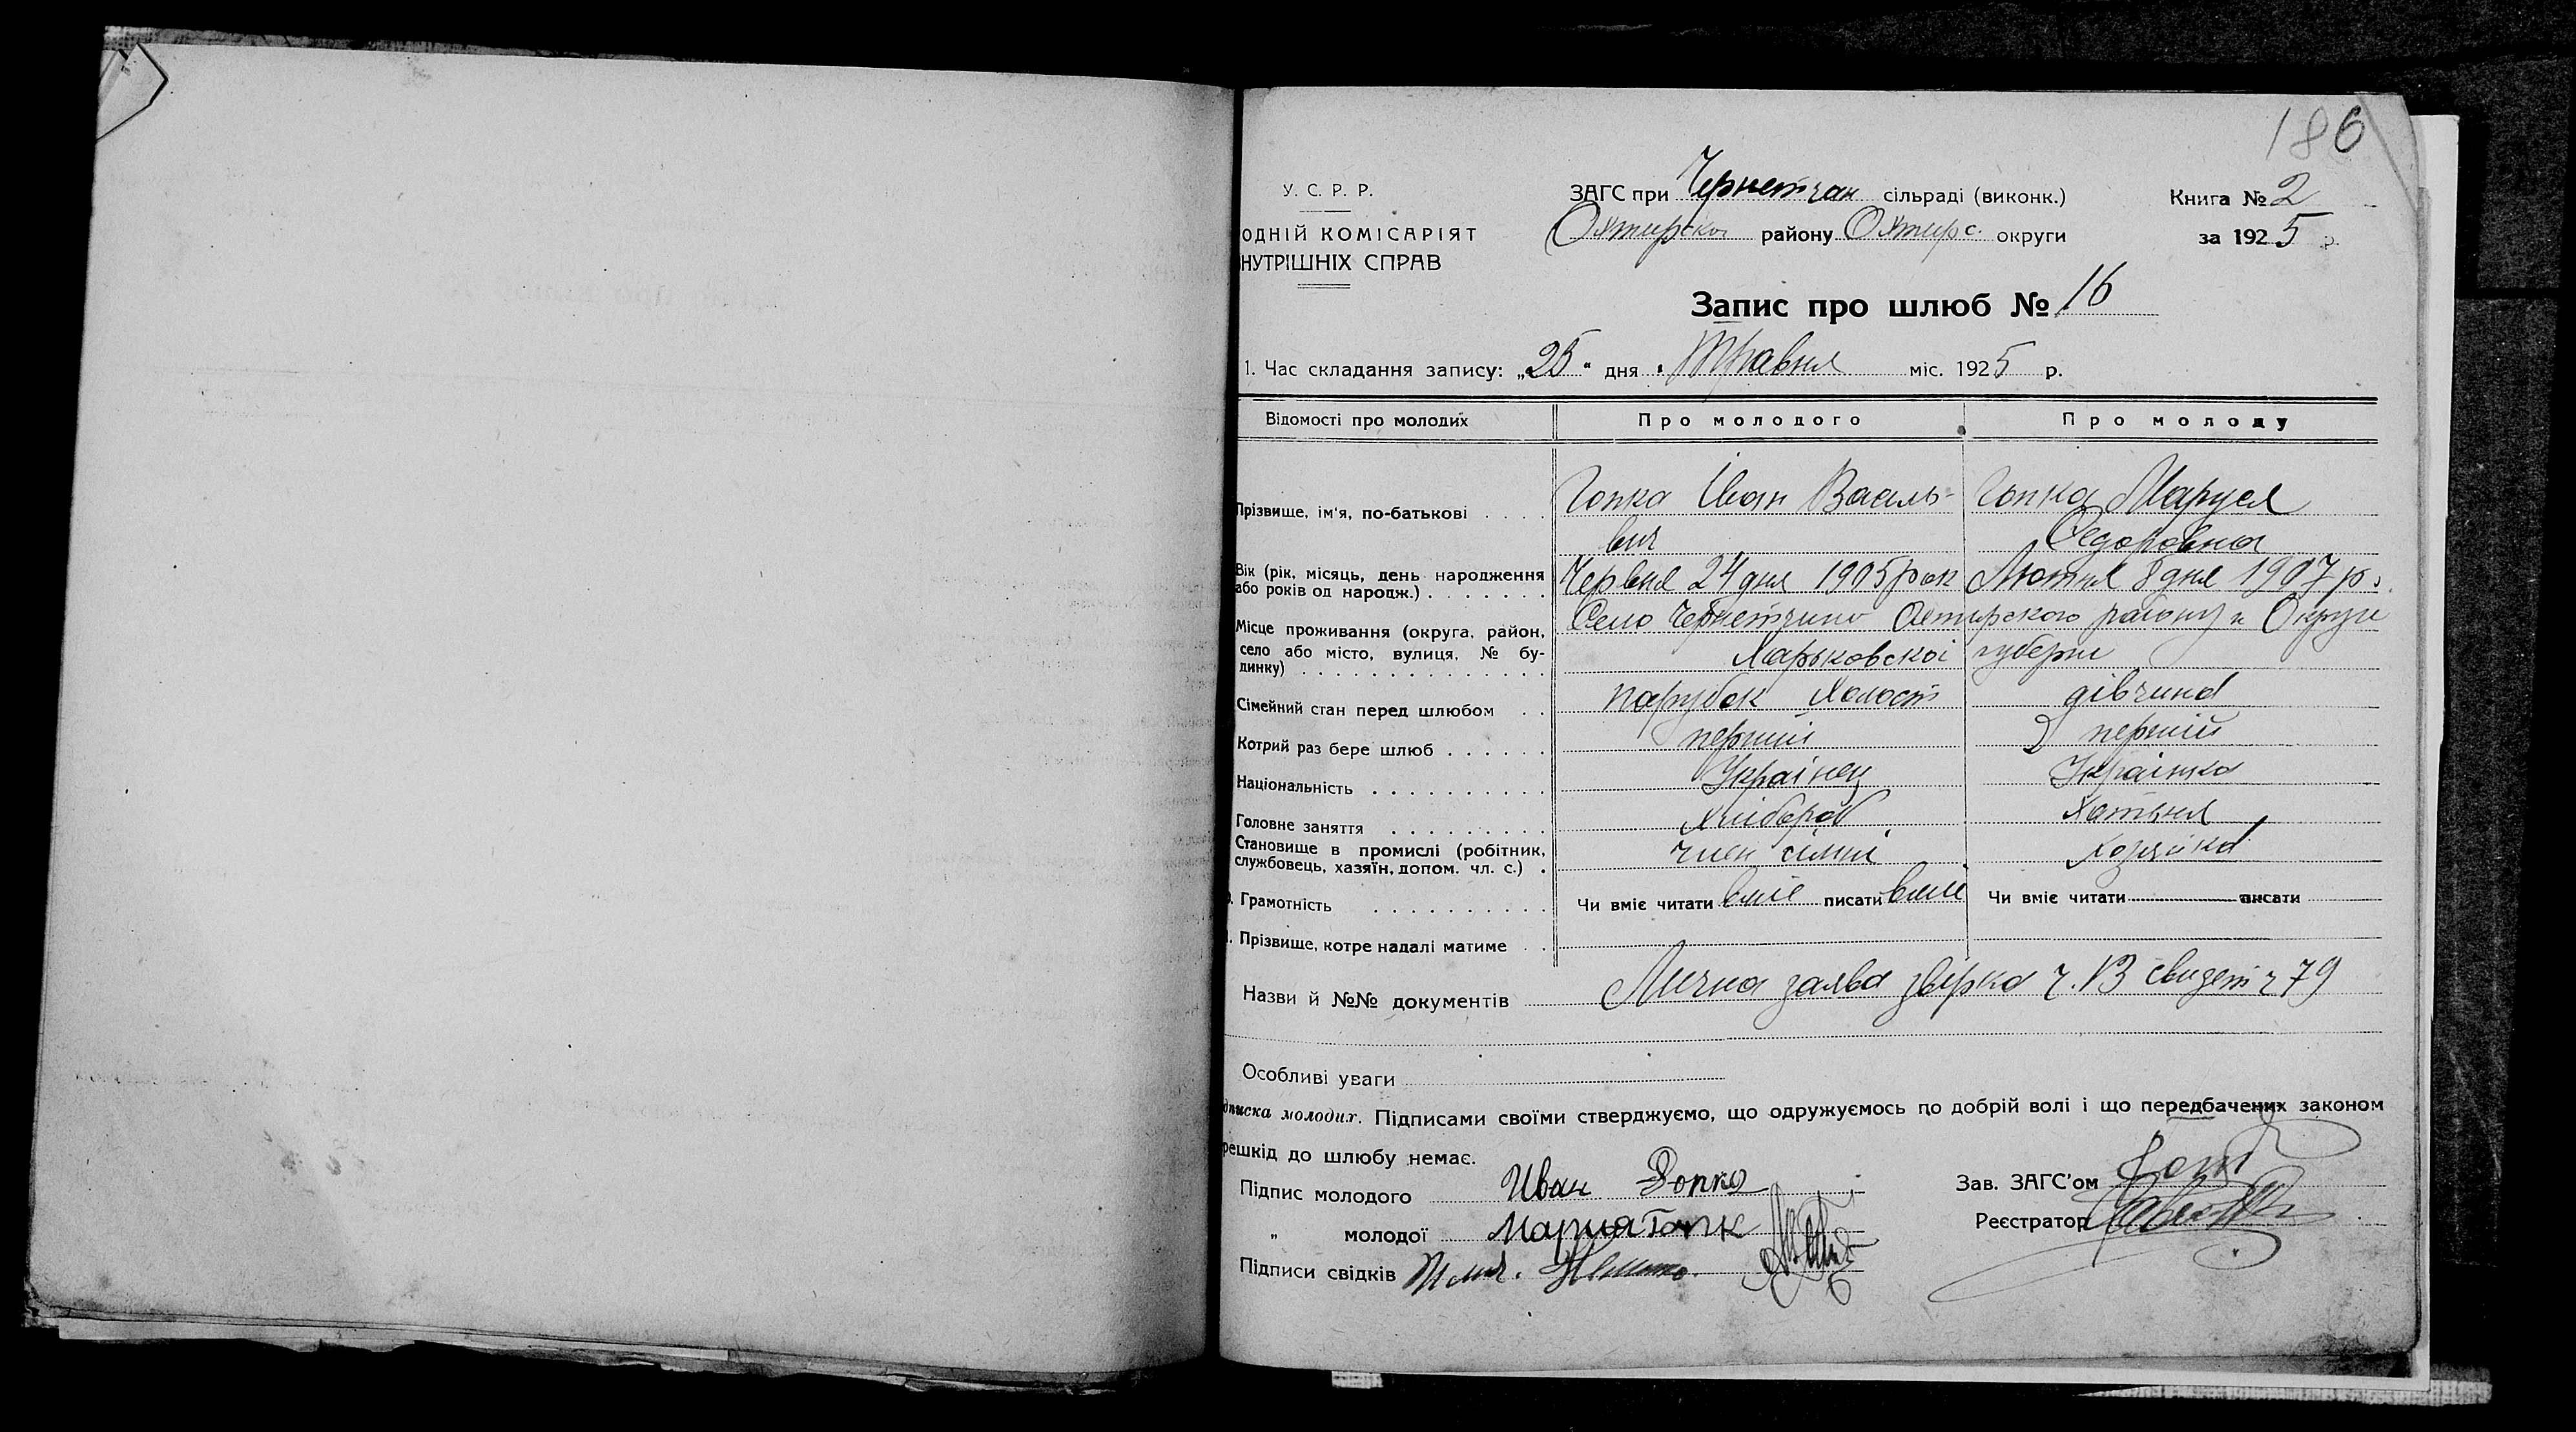 186
У. С. Р. Р.
ОДНІЙ КОМІСАРІЯТ
НУТРІШНІХ СПРАВ
ЗАГС при Чернетчан сільраді (виконк.)
Охтирскої району Охтирс. округи
Книга № 2
за 1925 р.
Запис про шлюб № 16
1. Час складання запису: „25“ дня Травня міс. 1925 р.
Відомості про молодих Про молодого Про молоду
Прізвище, ім'я, по-батькові . . . . Гопка Іван Василь- Гопка Маруся
вич Федоровна
Вік (рік, місяць, день народження або років од народж.) . . . . . . . Червня 24 дня 1905 рок Лютня 8 дня 1907 р.
Місце проживання (округа, район, село або місто, вулиця, № будинку) . . . . Село Чернетчино Охтирского району и Округи
Харьковскоі губерни
Сімейний стан перед шлюбом . . парубок холост дівчина
Котрий раз бере шлюб . . . . . . перший перший
Національність . . . . . . . . . . Українец Українка
Головне заняття . . . . . . . . . Хлибороб Хатьня
Становище в промислі (робітник, службовець, хазяїн, допом. чл. с.) . член сімні хозяйка
Грамотність . . . . . . . . . . Чи вміє читати вміє писати вміє Чи вміє читати писати
Прізвище, котре надалі матиме . .
Назви й №№ документів Лична заява звірка ч. 13 свидет ч 79
Особливі уваги
дписка молодих. Підписами своїми стверджуємо, що одружуємось по добрій волі і що передбачених законом
решкід до шлюбу немає.
Підпис молодого Иван Гопка
„ молодої Мария Гопк
Підписи свідків
Зав. ЗАГС'ом
Реєстратор